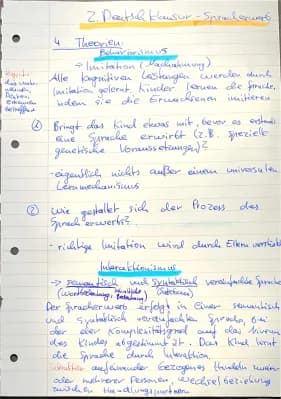 2. Deutsch Klausur - Spracherwerb
4 Theorien:
Behaviorismus
→ Imitation (Nachahmung)
Alle kognitiven Leistungen werden durch
Imitation gelernt. Kinder lernen die Sprache,
indem sie die Erwachsenen imitieren
kognitiv:
das
Denken,
Erkennen
betreffend
① Bringt das Kind etwas mit, bevor es erstmals
eine Sprache erwirbt (z.B. spezielle
genetische Voraussetzungen)?
- eigentlich nichts außer einem universalen
Lernmechanismus
② Wie gestaltet sich der Prozess des
Spracherwerbs?
- richtige Imitation wird durch Eltern verstärkt
Interaktionismus
→ semantisch und syntaktisch vereinfachte Sprache
(Wortbedeutung, inhaltliche Bedeutung)
Der Spracherwerb erfolgt in einer semantisch
und syntaktisch vereinfachten Sprache, bei
der der Komplexitätsgrad auf das Niveau
des Kindes abgestimmt ist. Das Kind lernt
die Sprache durch Interaktion.
Interaktion: aufeinander bezogenes Handeln zweier
oder mehrerer Personen, Wechselbeziehung
zwischen Handlungspartnern